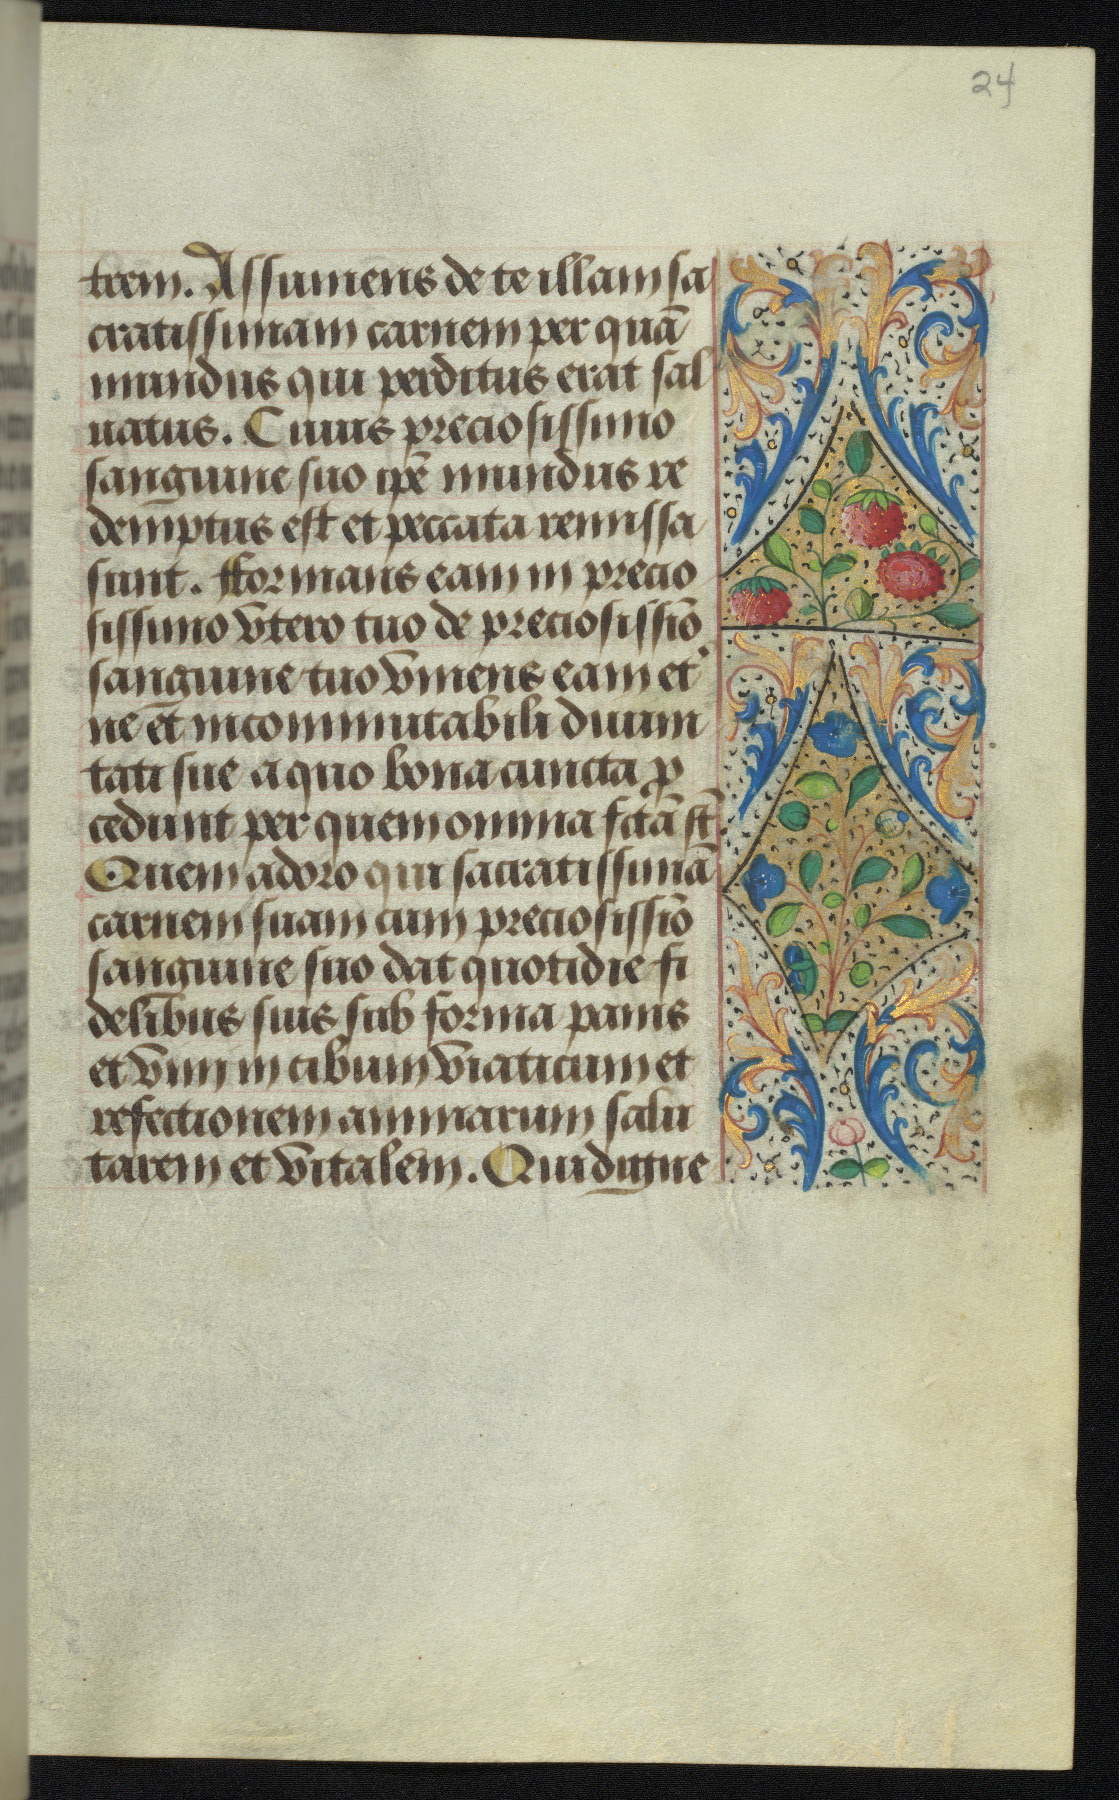 24
trem. Assumens de te illam sa
cratissimam carnem per quā
mundus qui perditus erat sal
uatus. Cuius preciosissimo
sanguine suo ip̄e mundus re
demptus est et peccata remissa
sunt. fformans eam in precio
sissimo vtero tuo de preciosissīo
sanguine tuo vniens eam et
ne et incommutabili diuini
tati sue a quo bona cuncta ꝓ
cedunt per quem omnia fctā st̄
Quem adoro qui sacratissimā
carnem suam cum preciosissīo
sanguine suo dat quotidie fi
delibus suis sub forma panis
et vini in cibum viaticum et
refectionem animarum salu
tarem et vitalem. Qui digne